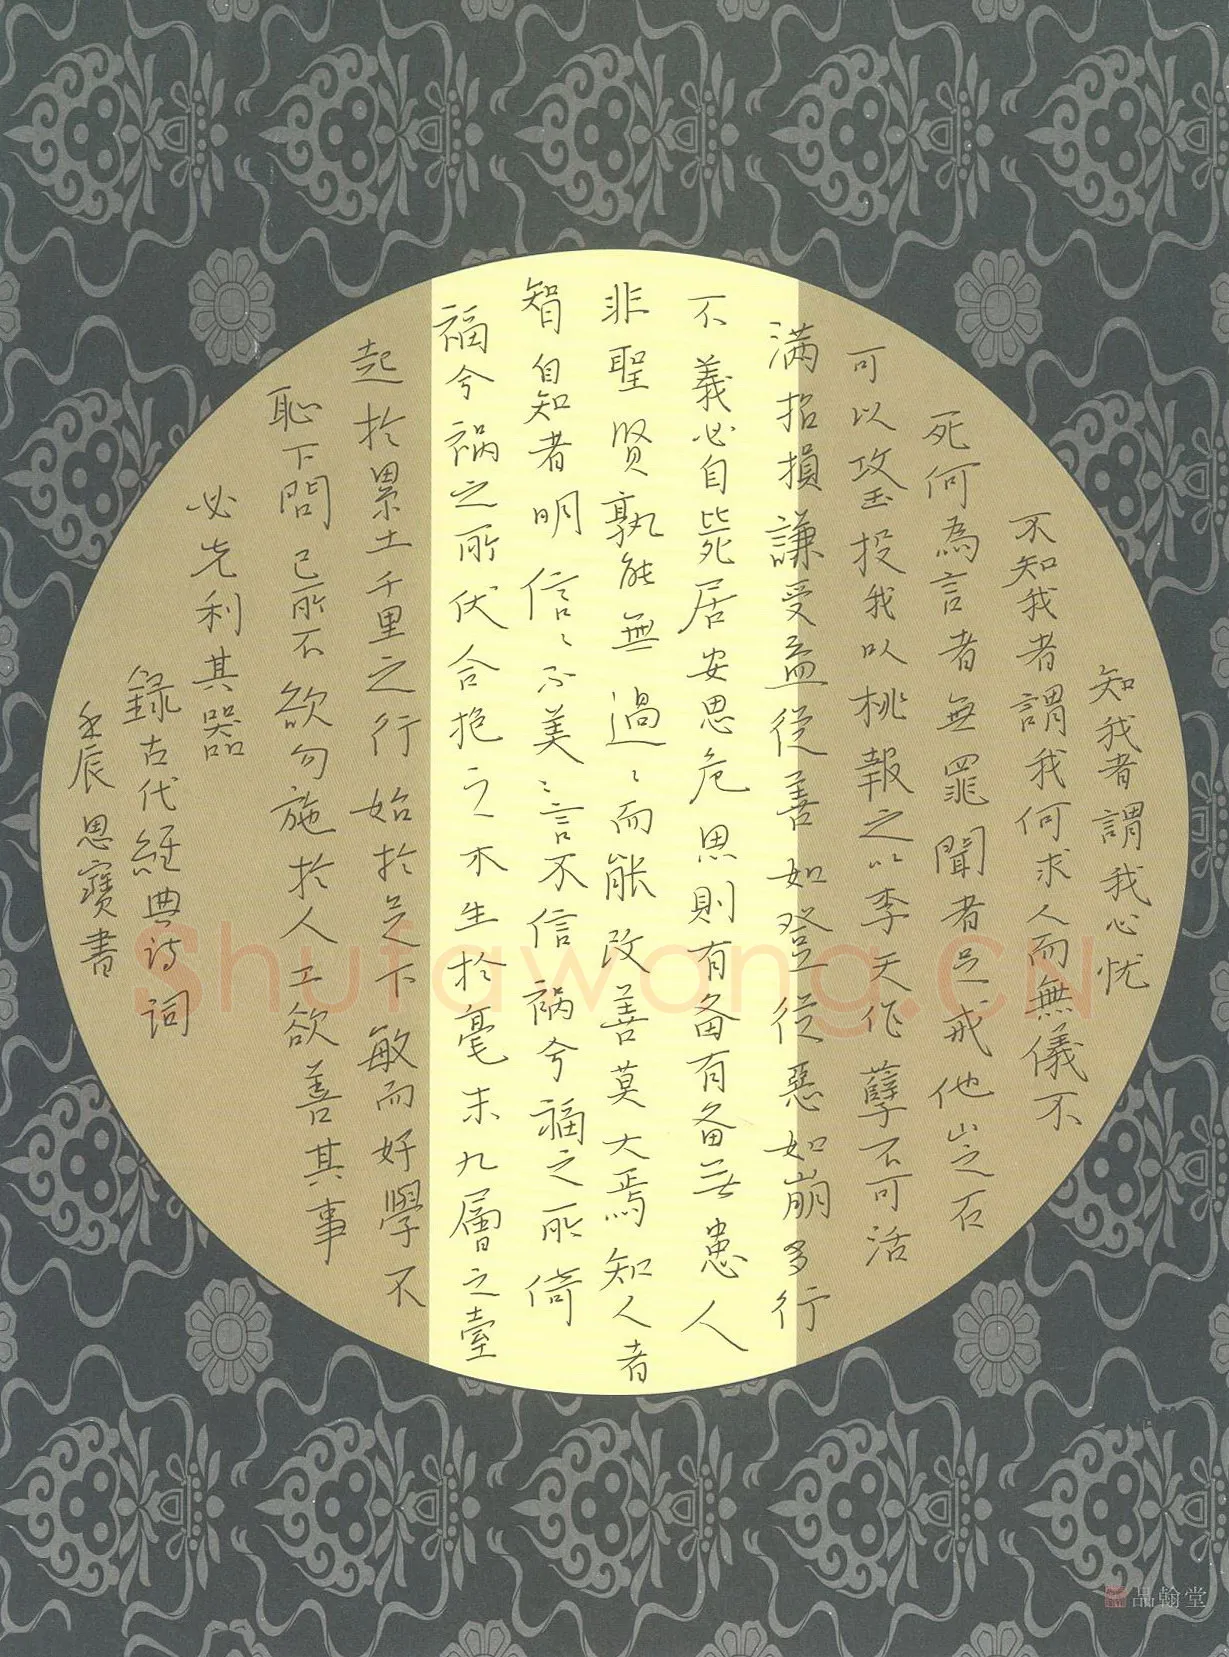 知我者謂我心忧
不知我者謂我何求人而無儀不
死何為言者無罪聞者足戒他山之石
可以攻玉投我以桃報之以李天作孽不可活
满招損謙受益從善如登從惡如崩多行
不義必自毙居安思危思則有备有备无患人
非聖贤孰能無過〻而能改善莫大焉知人者
智自知者明信〻不美〻言不信祸兮福之所倚
福兮祸之所伏合抱之木生於毫末九層之臺
起於累土千里之行始於足下敏而好學不
恥下問己所不欲勿施於人工欲善其事
必先利其器
録古代經典诗詞
壬辰思寶書
Shufawang.CN
品翰堂